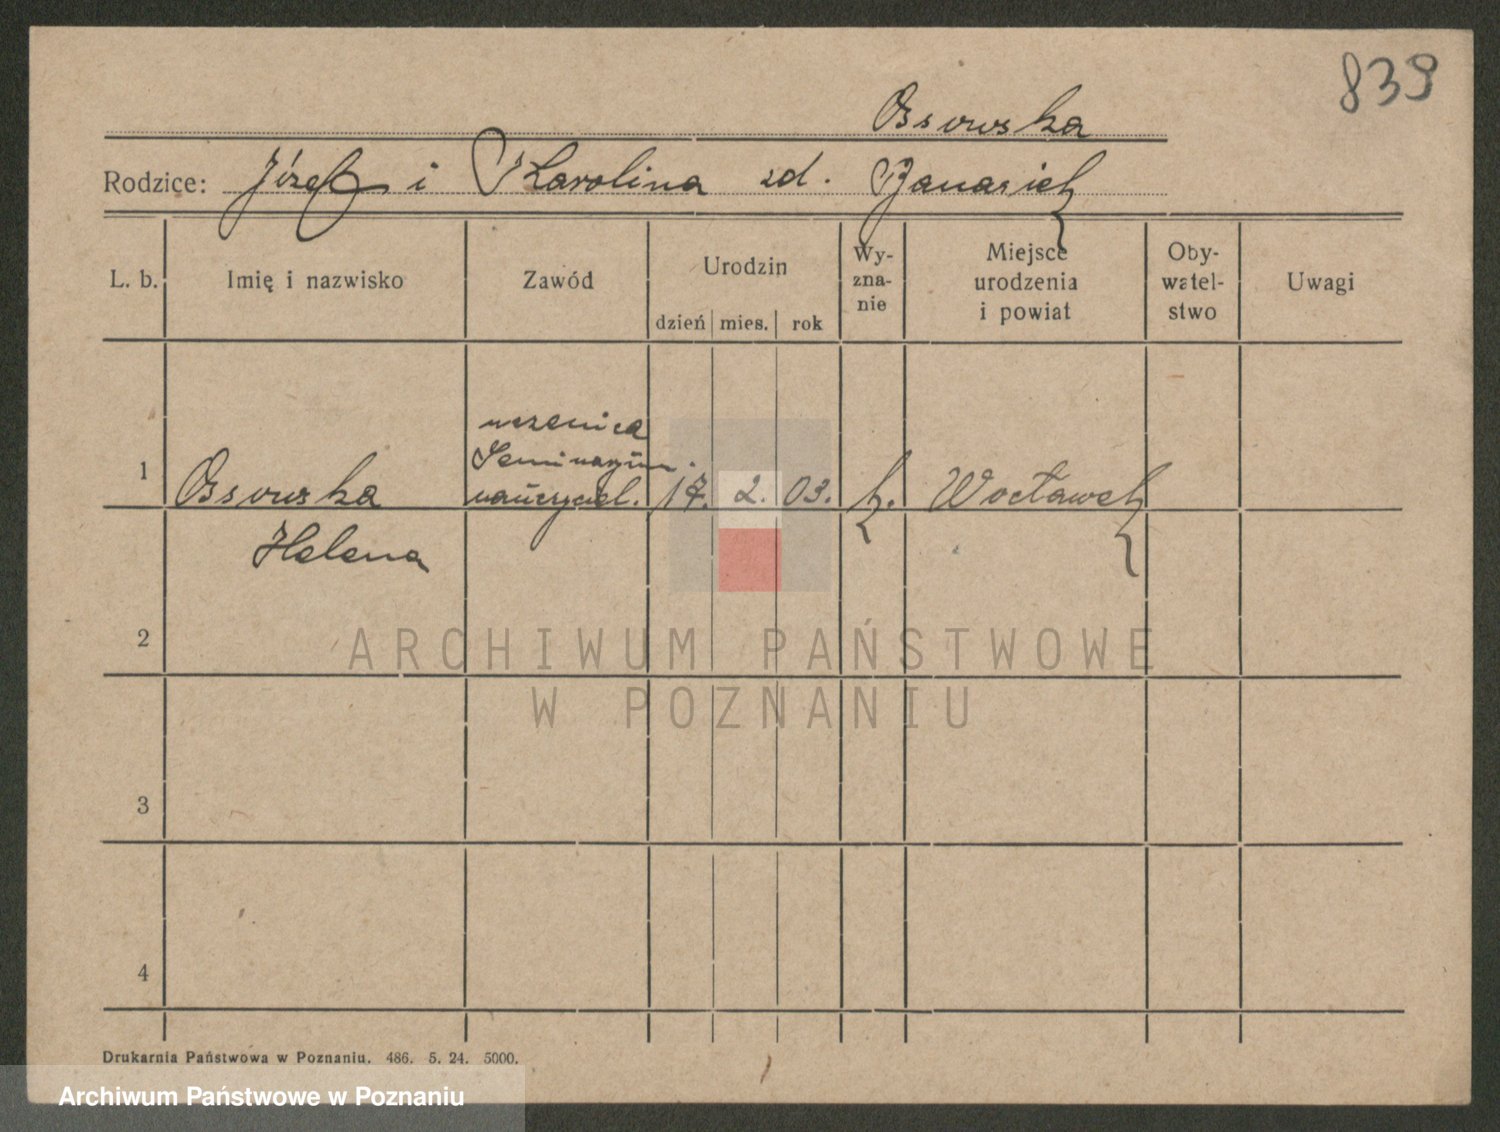 839
Ossowska
Rodzice: Józef i Karolina zd. Banasiak
L. b. Imię i nazwisko Zawód Urodzin dzień mies. rok Wy-zna-nie Miejsce urodzenia i powiat Oby-watel-stwo Uwagi
uczenica
Seminarjum
1 Ossowska nauczyciel. 17. 2. 03. k. Wocławek
Helena
2
ARCHIWUM PAŃSTWOWE
W POZNANIU
3
4
Drukarnia Państwowa w Poznaniu. 486. 5. 24. 5000.
Archiwum Państwowe w Poznaniu